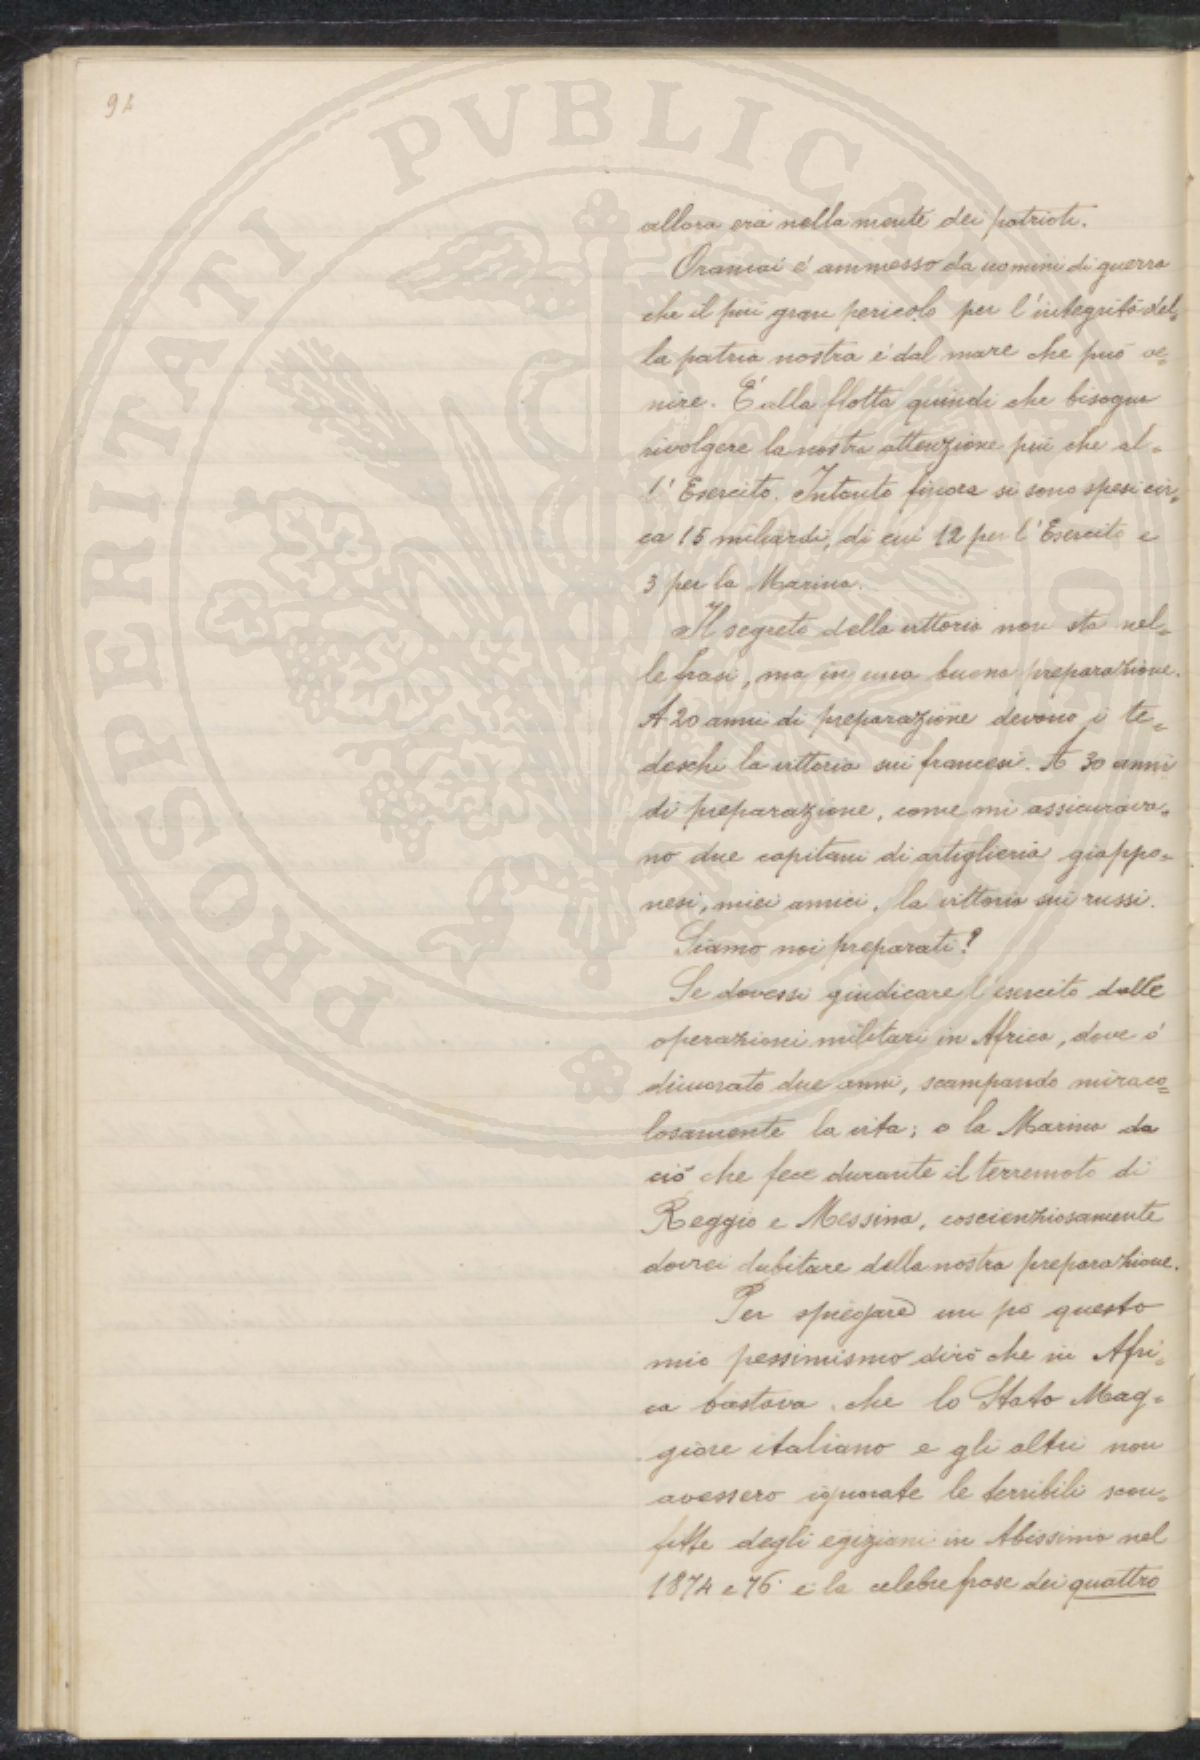 94
allora era nella mente dei patrioti.
Oramai é ammesso da uomini di guerra
che il più gran pericolo per l'integrità del=
la patria nostra é dal mare che può ve=
nire. É alla flotta quindi che bisogna
rivolgere la nostra attenzione più che al=
l'Esercito. Intanto finora si sono spesi cir=
ca 15 miliardi, di cui 12 per l'Esercito e
3 per la Marina.
Il segreto della vittoria non sta nel=
le frasi, ma in una buona preparazione.
A 20 anni di preparazione devono i te=
deschi la vittoria sui francesi. A 30 anni
di preparazione, come mi assicurava=
no due capitani di artiglieria giappo=
nesi, miei amici, la vittoria sui russi.
Siamo noi preparati?
Se dovessi giudicare l'esercito dalle
operazioni militari in Africa, dove ó
dimorato due anni, scampando miraco=
losamente la vita; o la Marina da
ciò che fece durante il terremoto di
Reggio e Messina, coscienziosamente
dovrei dubitare della nostra preparazione.
Per spiegare un pò questo
mio pessimismo dirò che in Afri=
ca bastava che lo Stato Mag=
giore italiano e gli altri non
avessero ignorate le terribili scon=
fitte degli egiziani in Abissinia nel
1874 e 76 e la celebre frase dei quattro
PROSPERITATI PVBLICAE